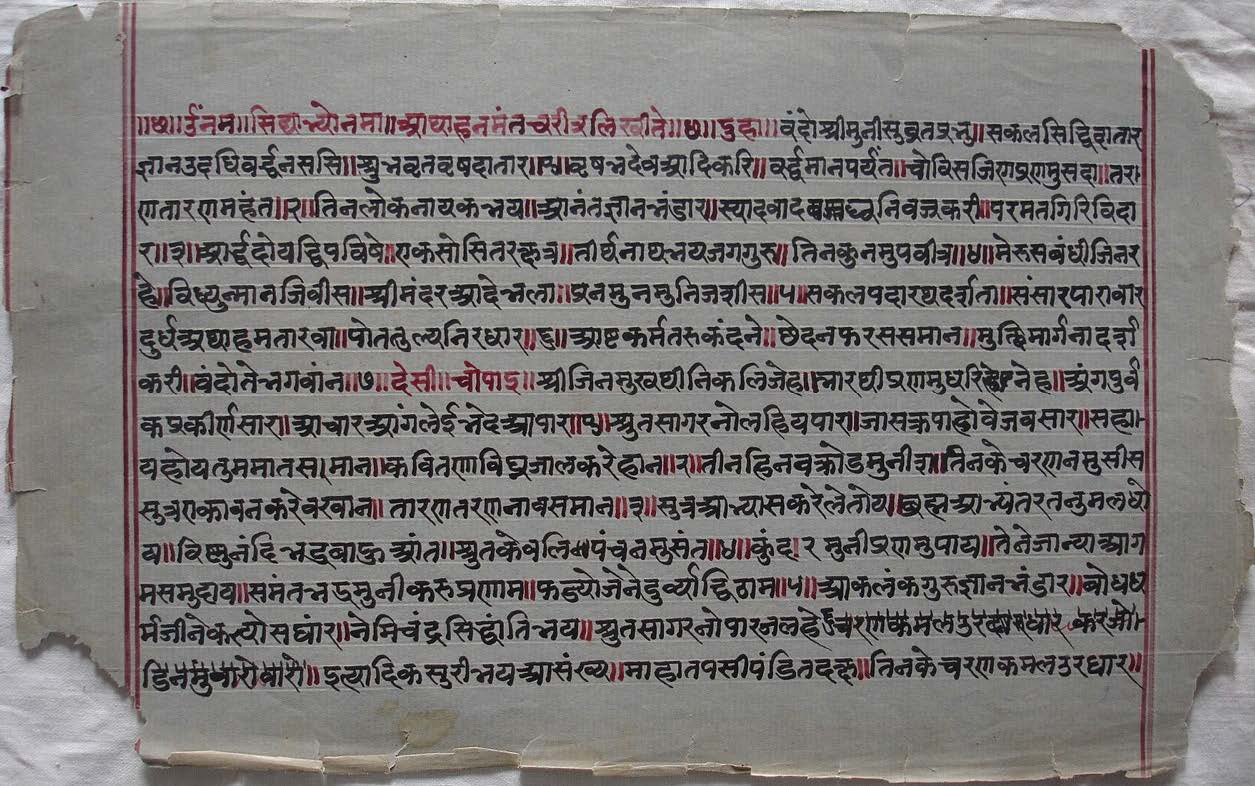 ॥छ॥ उंनम॥ सिद्याभ्योनमा॥ अथाहनमंतचरीत्रलिखीते॥छ॥ दुहा॥ वंदोश्रीमुनीसुव्रतप्रभु॥ सकलसिद्विदातार
ज्ञानउदधिवर्द्धनससि॥ श्रुभवृतवृषदातार॥१॥ वृषभदेवआदिकरि॥ वर्द्धमानपर्यंत॥ चोविसजिणप्रणमुसदा॥ तरा
णतारणमहंत॥२॥ तिनलोकनायकभय॥ आनंतज्ञानभंडार॥ स्याद्वाद निवज्रकरी॥ परमतगिरिविदा
र॥३॥ आर्द्धदोयद्विपविषे॥ एकसोसितरक्षत्र॥ तीर्थनाथभयजगगुरु॥ तिनकुनमुपवीत्र॥४॥ मेरुसबंधीजिनर
हे॥ विध्युन्मानजिवीस॥ श्रीमंदरआदेभला॥ प्रनमुनमुनिजशीस॥५॥ सकलपदारथदर्शता॥ संसारपारावार
दुर्धअथाहमतारवा॥ पोततुल्यनिरधार॥६॥ आष्टकर्मतरुकंदने॥ छेदनफरससमान॥ मुक्तिमार्गनादर्श
करी॥ वंदोतेभगवांन॥७॥ देसी॥ चोपाइ॥ श्रीजिनमुखथीनिकलिजेह॥ भारथीप्रणमुधरि नेह॥ अंगपुर्व
कप्रकीर्णसार॥ आचारआंगलेईभेदआपार॥१॥ श्रुतसागरनोलहियपार॥ जासक्रपाहोवेजवसार॥ सहा
यहोयतुममातसमान॥ कवितणाविघ्नजालकरेहान॥२॥ तीनहिनवक्रोडमुनीश॥ तिनकेचरणनमुसीस
सुत्रणकावनकरेवखान॥ तारणतरणनावसमान॥३॥ सुत्रआभ्यासकरेलेतोय॥ ब्रह्मआभ्यंतरतनुमलधो
य॥ विष्णुनंदिभद्रबाहुआंत॥ श्रुतकेवलि पंचनमुसंत॥४॥ कुंदा र मुनीप्रणमुपाय॥ तेनेजान्याआग
मसमुदाय॥ समंतभद्रमुनीकरुप्रणाम॥ फडयोजेनेदुर्व्याद्विठाम॥५॥ आकलंकगुरुज्ञानभंडार॥ बोधध
र्मजीनेकत्योसघांर॥ नेमिचंद्रसिद्धांतिभय॥ श्रुतसागरनोपारजलहे चरणकमलउर धार करजो
डिनमुवारोवारो॥ इत्यादिकसुरीभयआसंख्य॥ माहातपसीपंडितदक्ष॥ तिनकेचरणकमलउरधार॥